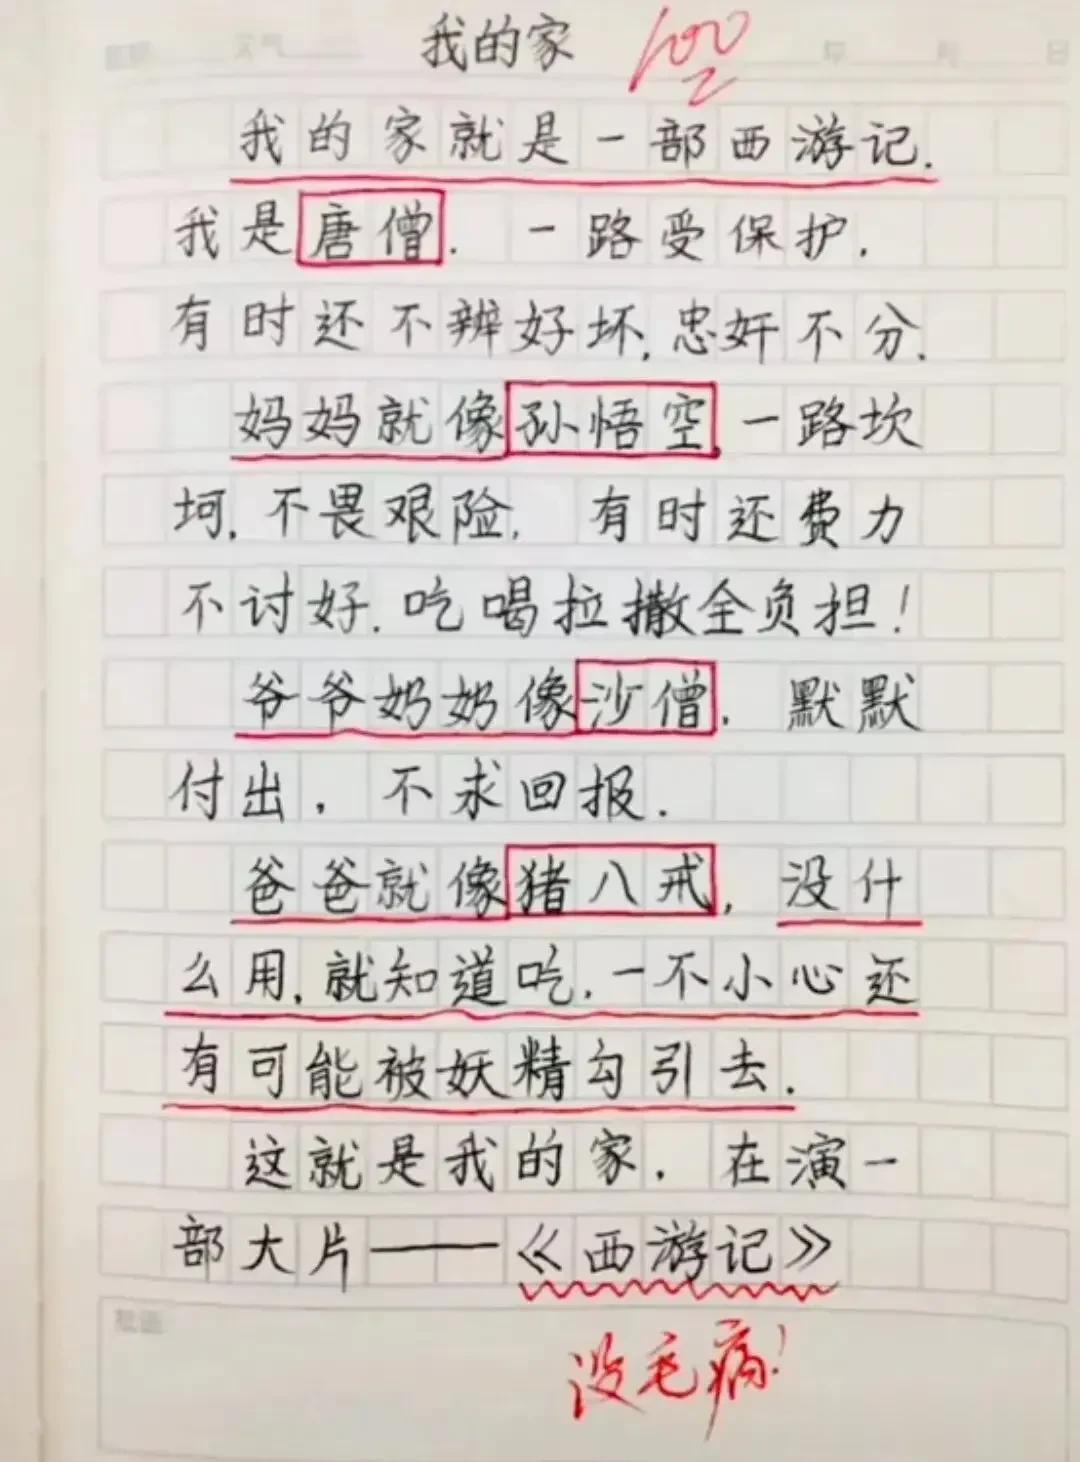 我的家 100
我的家就是一部西游记.
我是唐僧. 一路受保护.
有时还不辨好坏,忠奸不分.
妈妈就像孙悟空,一路坎
坷,不畏艰险, 有时还费力
不讨好.吃喝拉撒全负担!
爷爷奶奶像沙僧. 默默
付出,不求回报.
爸爸就像猪八戒,没什
么用,就知道吃.一不小心还
有可能被妖精勾引去.
这就是我的家. 在演一
部大片——《西游记》
没毛病!